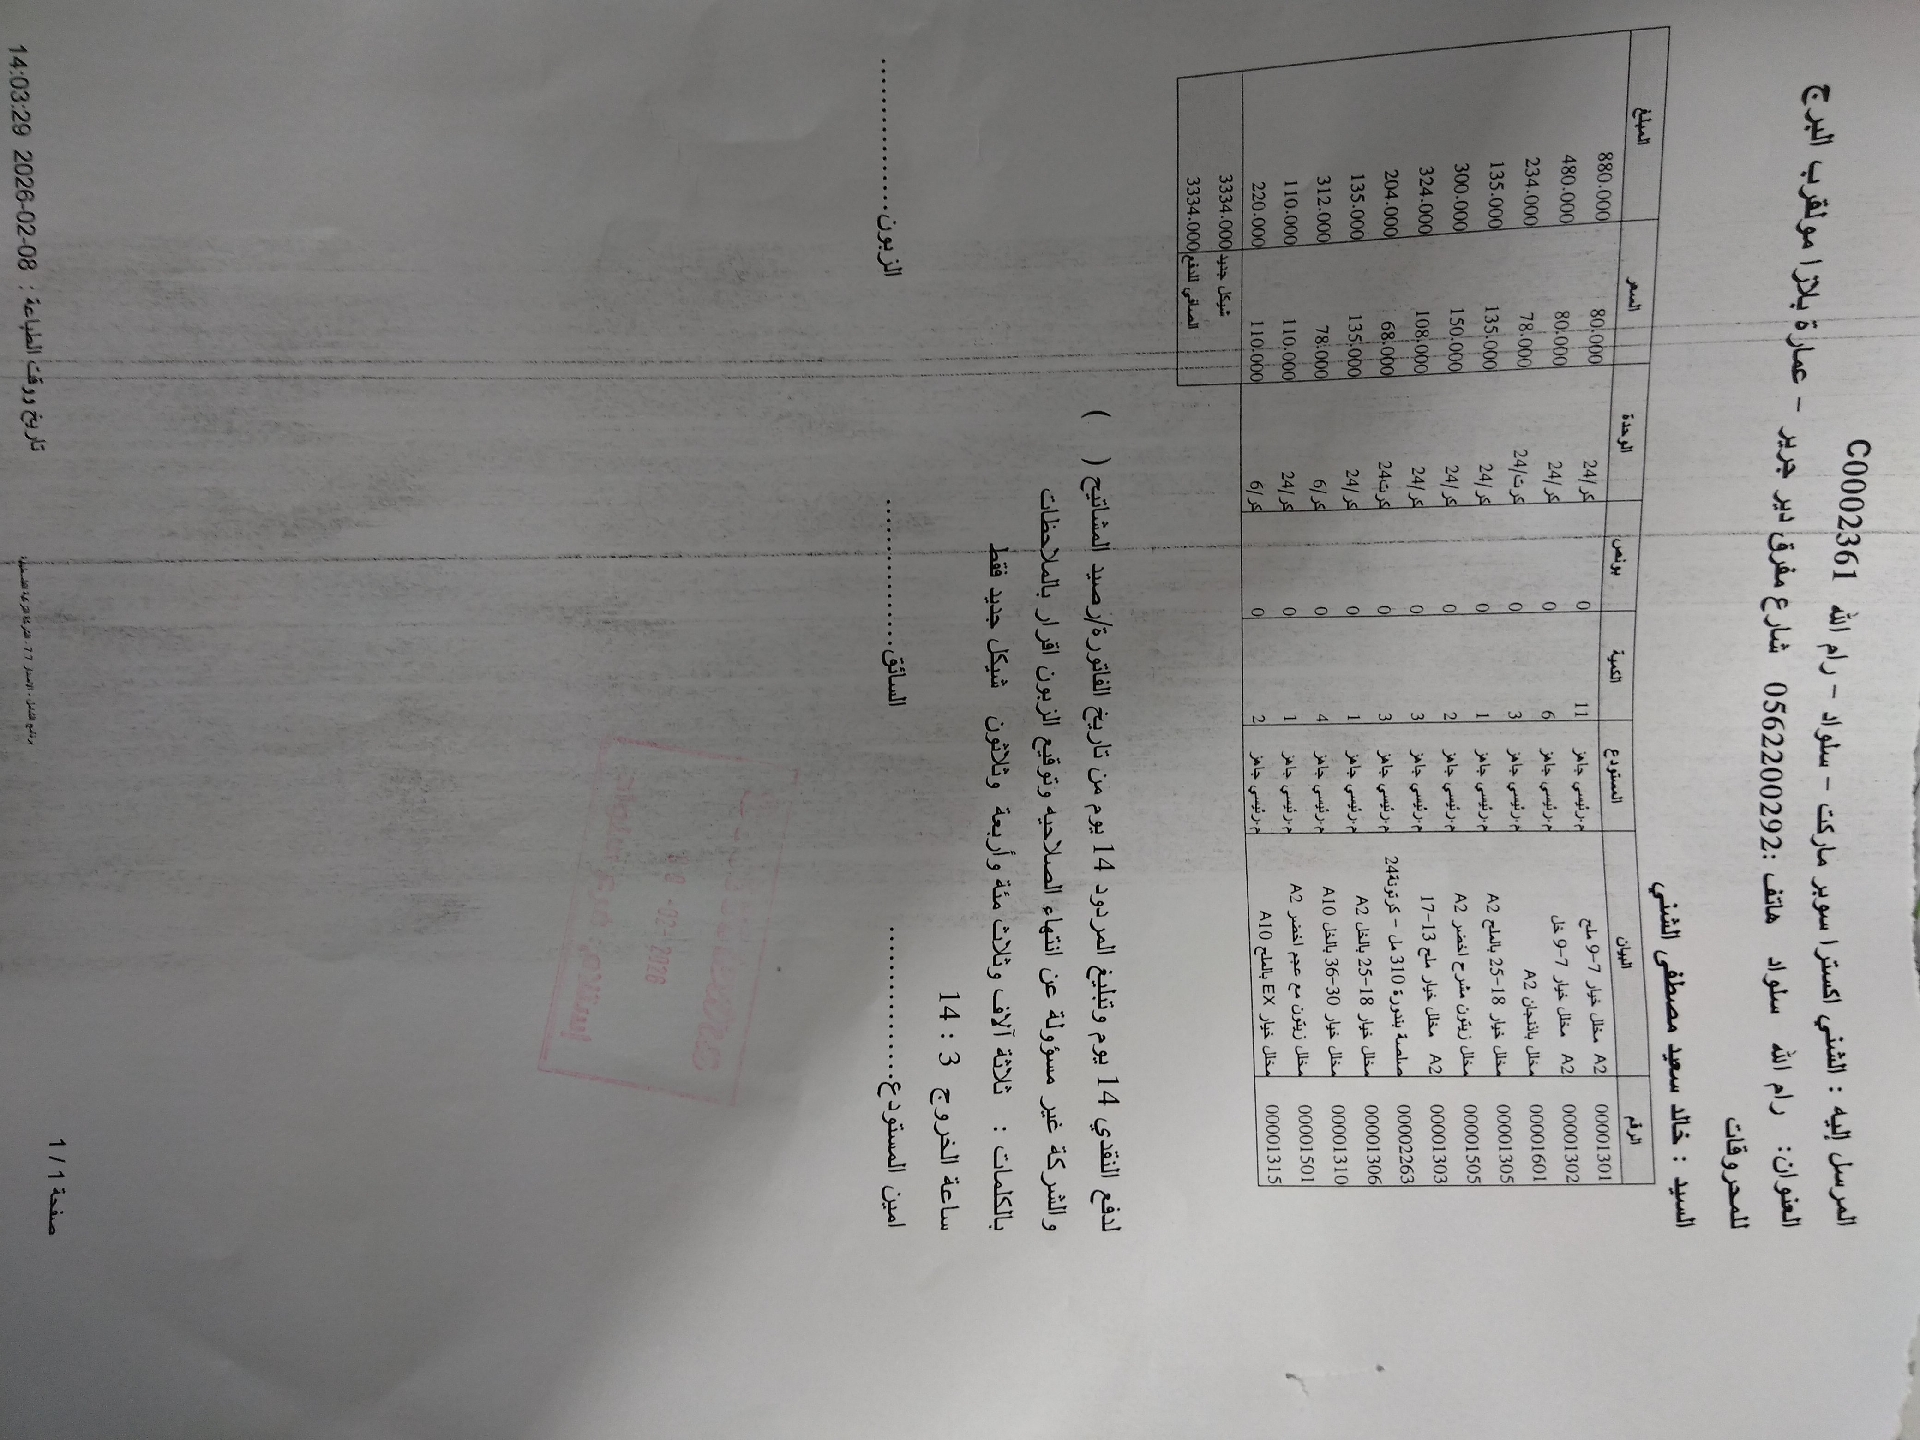 المرسل إليه : الشني اكسترا سوبر ماركت - سلواد - رام الله C0002361
العنوان: رام الله سلواد هاتف :0562200292 شارع مفرق دير جرير - عمارة بلازا مولقرب البرج
للمحروقات
السيد : خالد سعيد مصطفى الشني
الرقم البيان المستودع الكمية بونص الوحدة السعر المبلغ
00001301 A2 مخلل خيار 7-9 ملح م.رئيسي جاهز 11 0 كر/24 80.000 880.000
00001302 A2 مخلل خيار 7-9 خل م.رئيسي جاهز 6 0 كر/24 80.000 480.000
00001601 مخلل باذنجان A2 م.رئيسي جاهز 3 0 كرت/24 78.000 234.000
00001305 مخلل خيار 18-25 بالملح A2 م.رئيسي جاهز 1 0 كر/24 135.000 135.000
00001505 مخلل زيتون مشرح اخضر A2 م.رئيسي جاهز 2 0 كر/24 150.000 300.000
00001303 A2 مخلل خيار ملح 13-17 م.رئيسي جاهز 3 0 كر/24 108.000 324.000
00002263 صلصة بندورة 310 مل - كرتونة24 م.رئيسي جاهز 3 0 كرت24 68.000 204.000
00001306 مخلل خيار 18-25 بالخل A2 م.رئيسي جاهز 1 0 كر/24 135.000 135.000
00001310 مخلل خيار 30-36 بالخل A10 م.رئيسي جاهز 4 0 كر/6 78.000 312.000
00001501 مخلل زيتون مع عجم اخضر A2 م.رئيسي جاهز 1 0 كر/24 110.000 110.000
00001315 مخلل خيار EX بالملح A10 م.رئيسي جاهز 2 0 كر/6 110.000 220.000
شيكل جديد 3334.000
الصافي للدفع 3334.000
لدفع النقدي 14 يوم وتبليغ المردود 14 يوم من تاريخ الفاتورة/رصيد المشاتيح ( )
والشركة غير مسؤولة عن انتهاء الصلاحيه وتوقيع الزبون اقرار بالملاحظات
بالكلمات : ثلاثة آلاف وثلاث مئة وأربعة وثلاثون شيكل جديد فقط
ساعة الخروج 3 : 14
امين المستودع............... السائق............... الزبون...............
-02- 2026
صفحة 1 / 1
تاريخ ووقت الطباعة : 2026-02-08 14:03:29